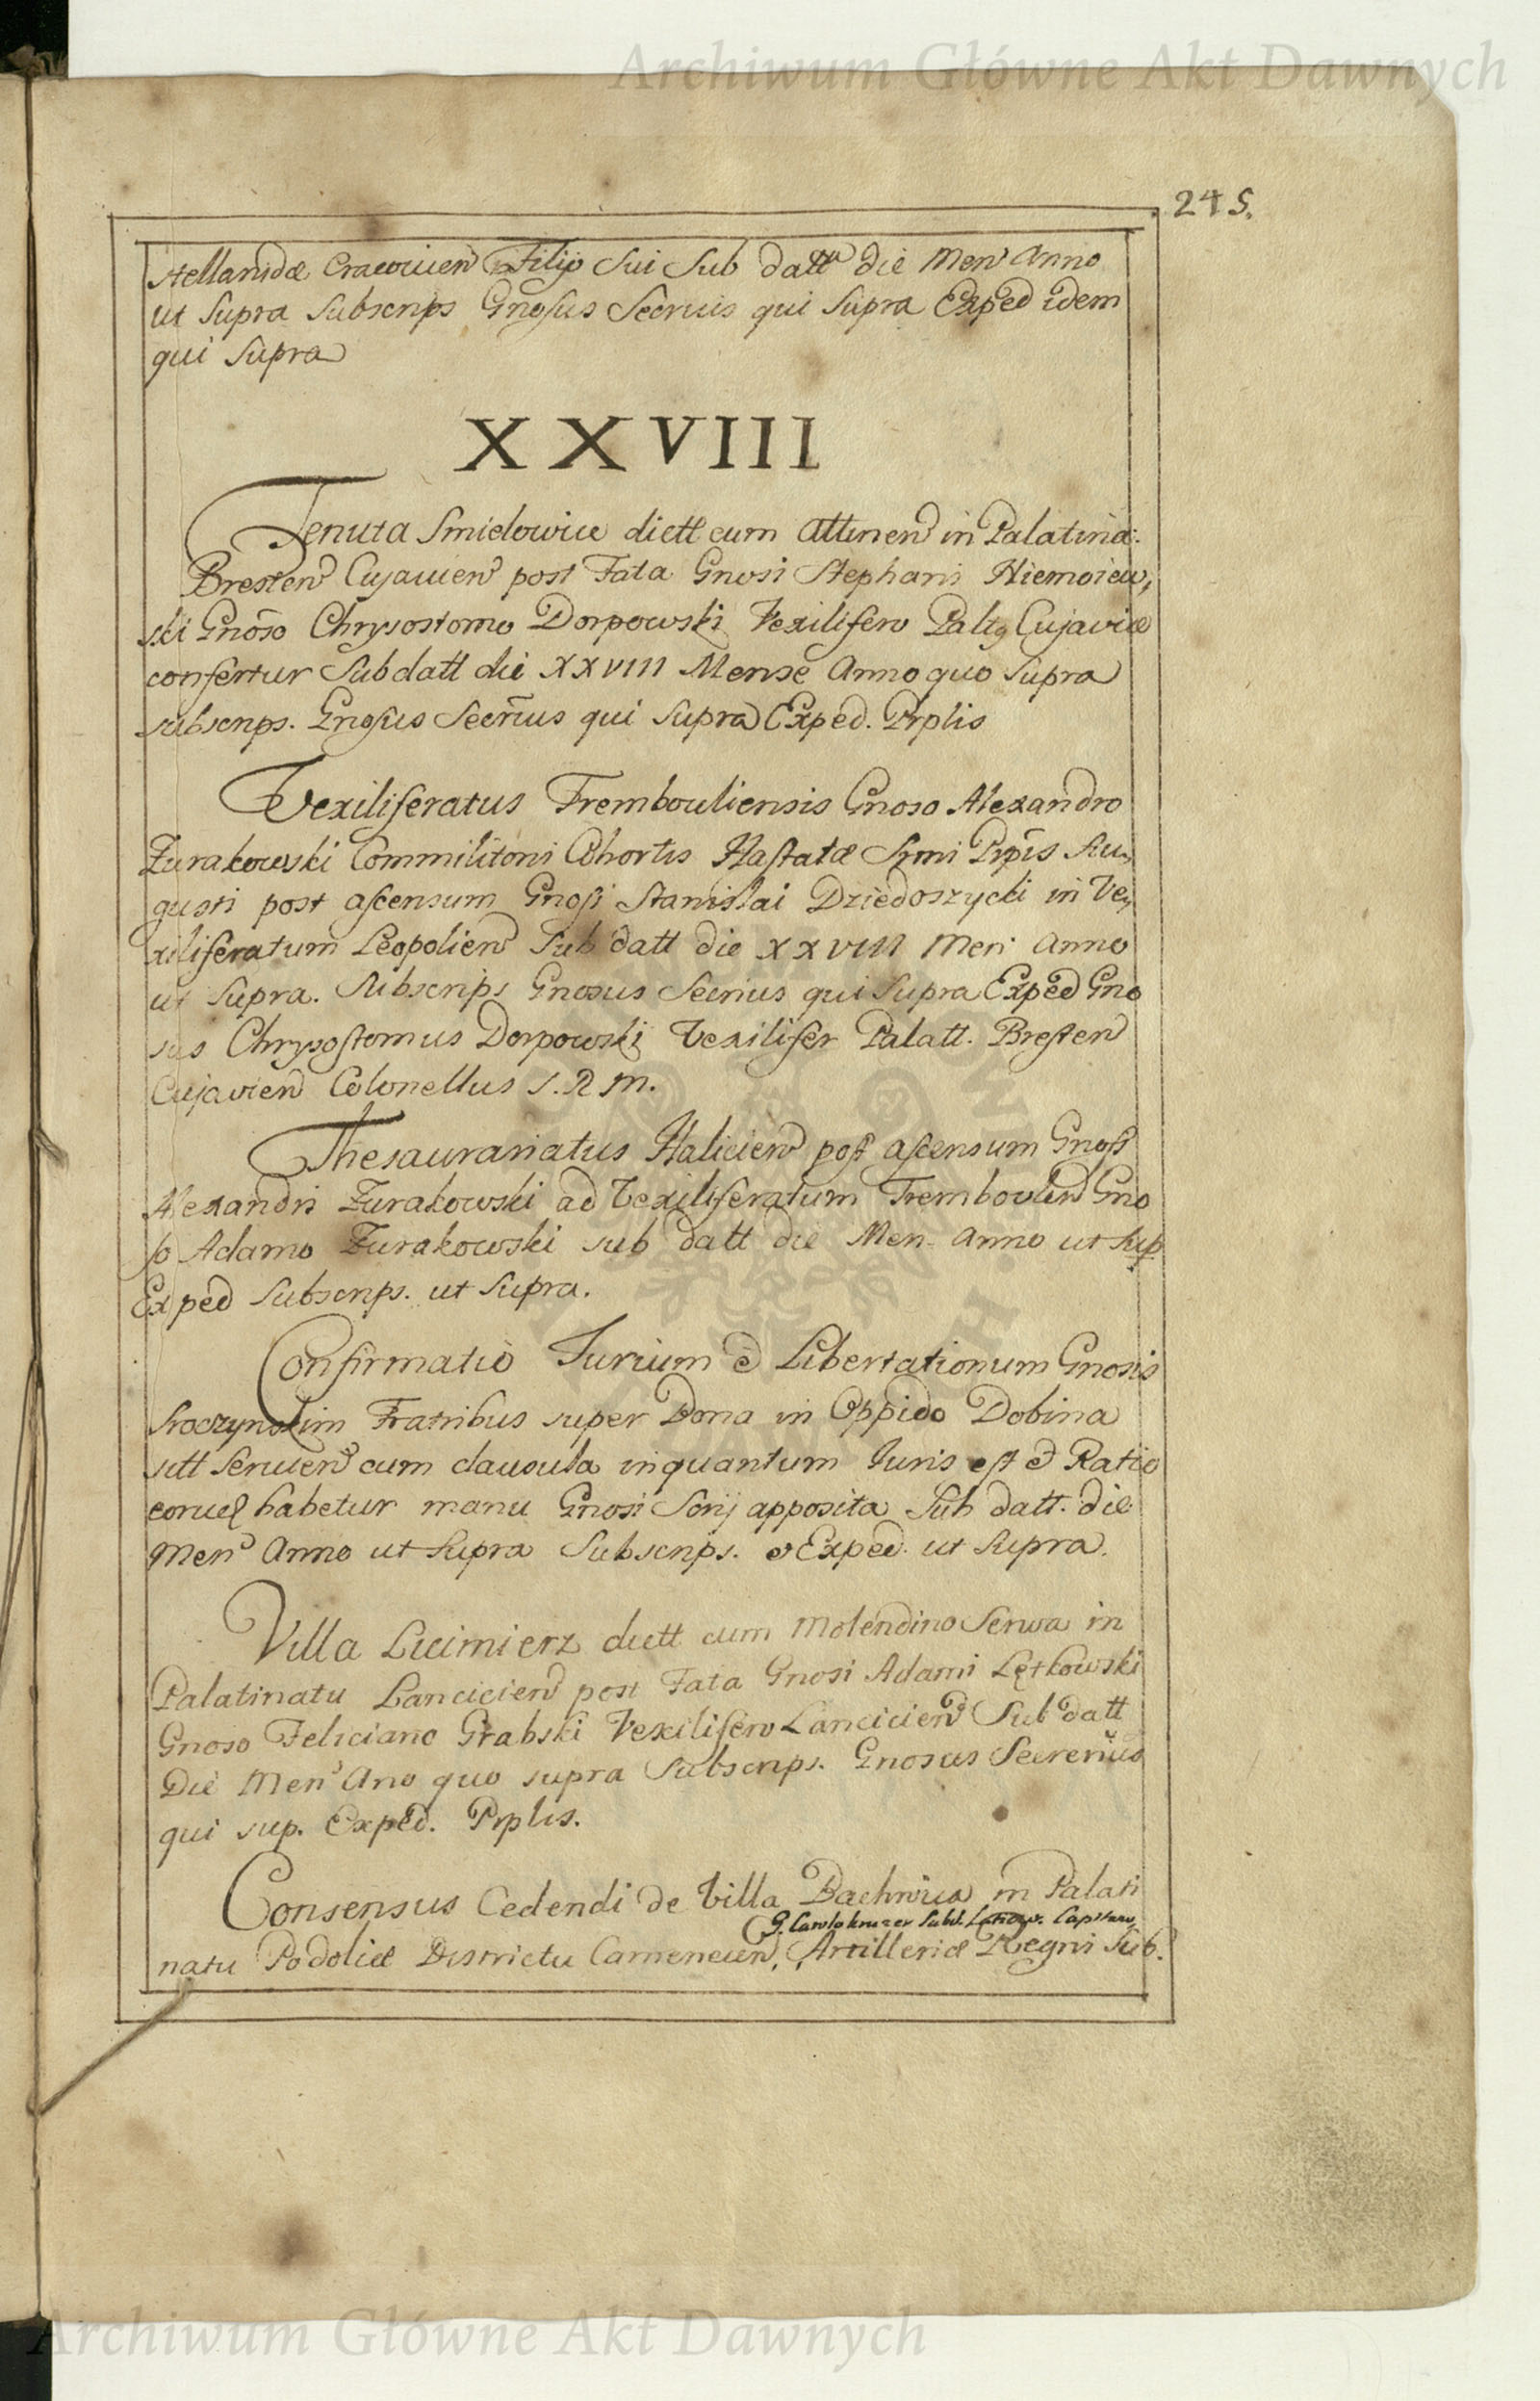 Archiwum Główne Akt Dawnych
245.
stellanidæ Cracovien Filij Sui Sub datt die Men Anno
ut Supra Subscrips Gnosus Secrius qui Supra Exped idem
qui Supra
XXVIII
Tenuta Smielowice dictt cum Attinen in Palatina:
Bresten Cujavien post Fata Gnosi Stephani Niemoiew,
ski Gnoso Chrysostomo Dorpowski Vexilifero Paltg Cujaviæ
confertur Sub datt die XXVIII Mense Anno quo Supra
subscrips. Gnosus Secrius qui Supra Exped. Prplis
Vexiliferatus Trembouliensis Gnoso Alexandro
Zurakowski Commilitoni Cohortis Hastatæ Srmi Prpis Au,
gusti post ascensum Gnosi Stanislai Dziedoszycki in Ve,
xiliferatum Leopolien Sub datt die XXVIII Men Anno
ut Supra. Subscrips Gnosus Secrius qui Supra Exped Gno
sus Chrysostomus Dorpowski Vexilifer Palatt. Bresten
Cujavien Colonellus S.R M.
Thesaurariatus Halicien post ascensum Gnosi
Alexandri Zurakowski ad Vexiliferatum Tremboulien Gno
so Adamo Zurakowski sub datt die Men Anno ut Sup
Exped Subscrips. ut Supra.
Confirmatio Jurium & Libertationum Gnosis
Fratribus super Bona in Oppido Dobina
sitt Servien cum clausula inquantum Juris est & Ratio
habetur manu Gnosi Scrij apposita Sub datt. die
Men Anno ut Supra Subscrips. & Exped. ut Supra.
Villa Lucimierz dictt cum Molendino Serwa in
Palatinatu Lancicien post Fata Gnosi Adami Lętkowski
Gnoso Feliciano Grabski Vexilifero Lancicien Sub datt
Die Men Ano quo supra Subscrips. Gnosus Secrerius
qui sup. Exped. Prplis.
Consensus Cedendi de Villa Bachnica in Palati
G. Carolo kruzer Capitano
natu Podoliæ Districtu Camenecien, Artilleriæ Regni Sub.
Archiwum Główne Akt Dawnych